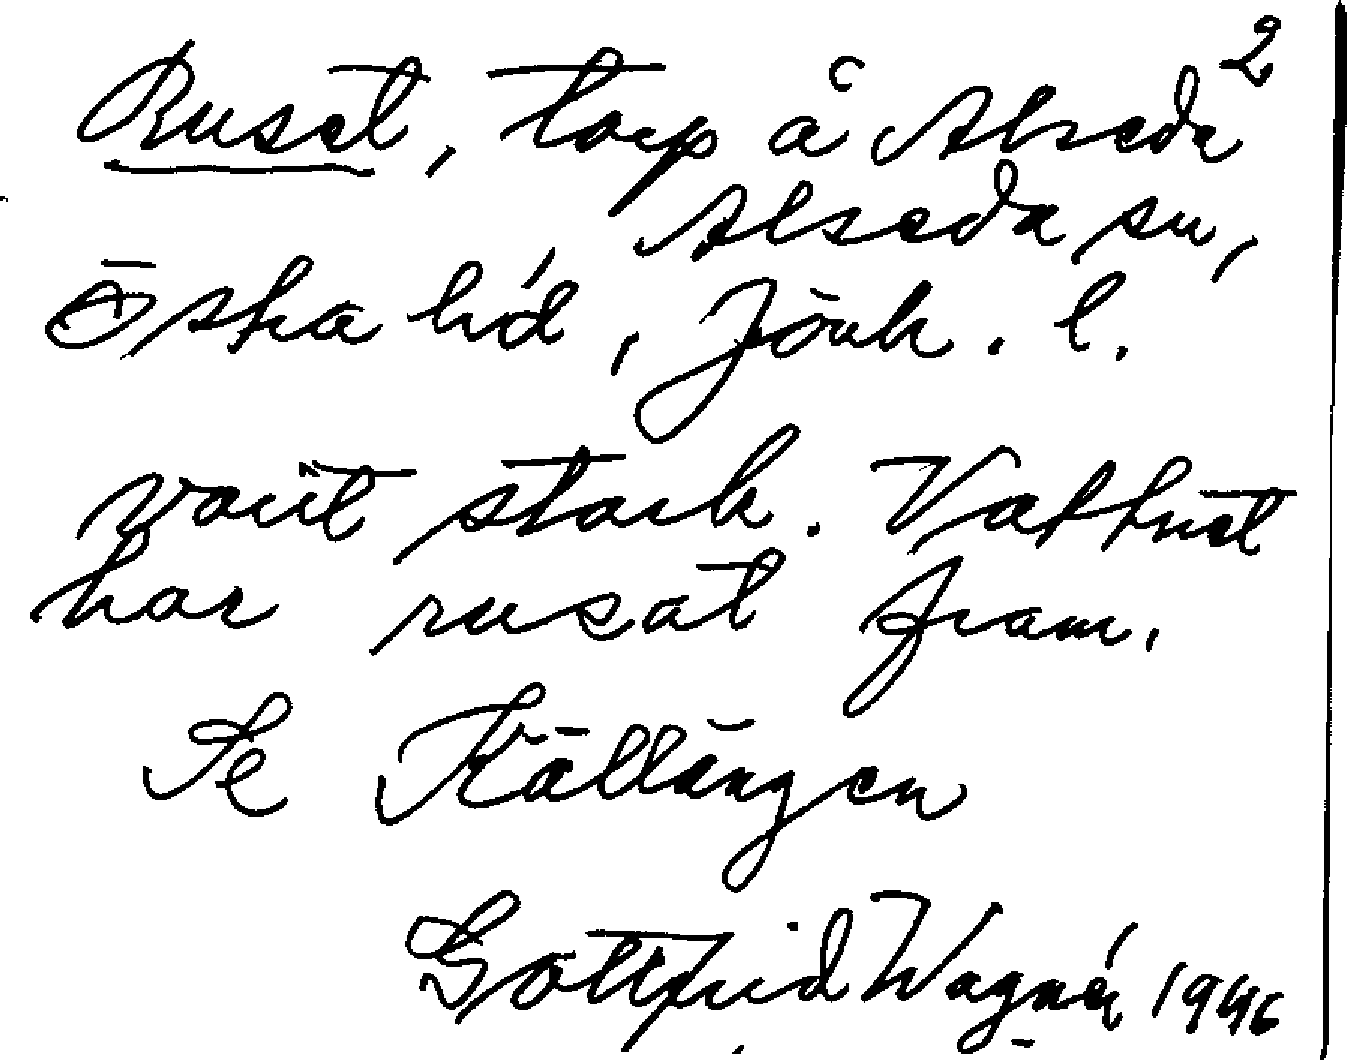 Ruset, torp å Alseda 2
Alseda sn,
Östra hd, Jönk. l.
varit stark. Vattnet
har rusat fram.
Se Källängen
Gottfrid Wagnér 1946